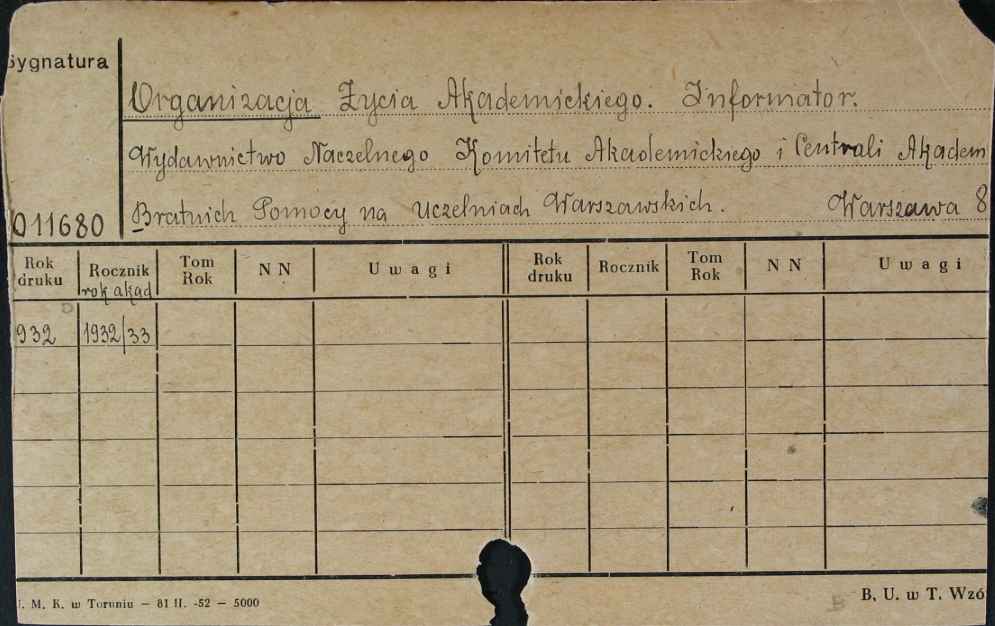 Sygnatura
Organizacja Życia Akademickiego. Informator.
Wydawnictwo Naczelnego Komitetu Akademickiego i Centrali Akadem
Bratnich Pomocy na Uczelniach Warszawskich. Warszawa 8
011680
Rok druku Rocznik rok akad Tom Rok N N Uwagi Rok druku Rocznik Tom Rok N N Uwagi
932 1932/33
. M. K. w Toruniu — 81 II. -52 — 5000
B. U. w T. Wzó